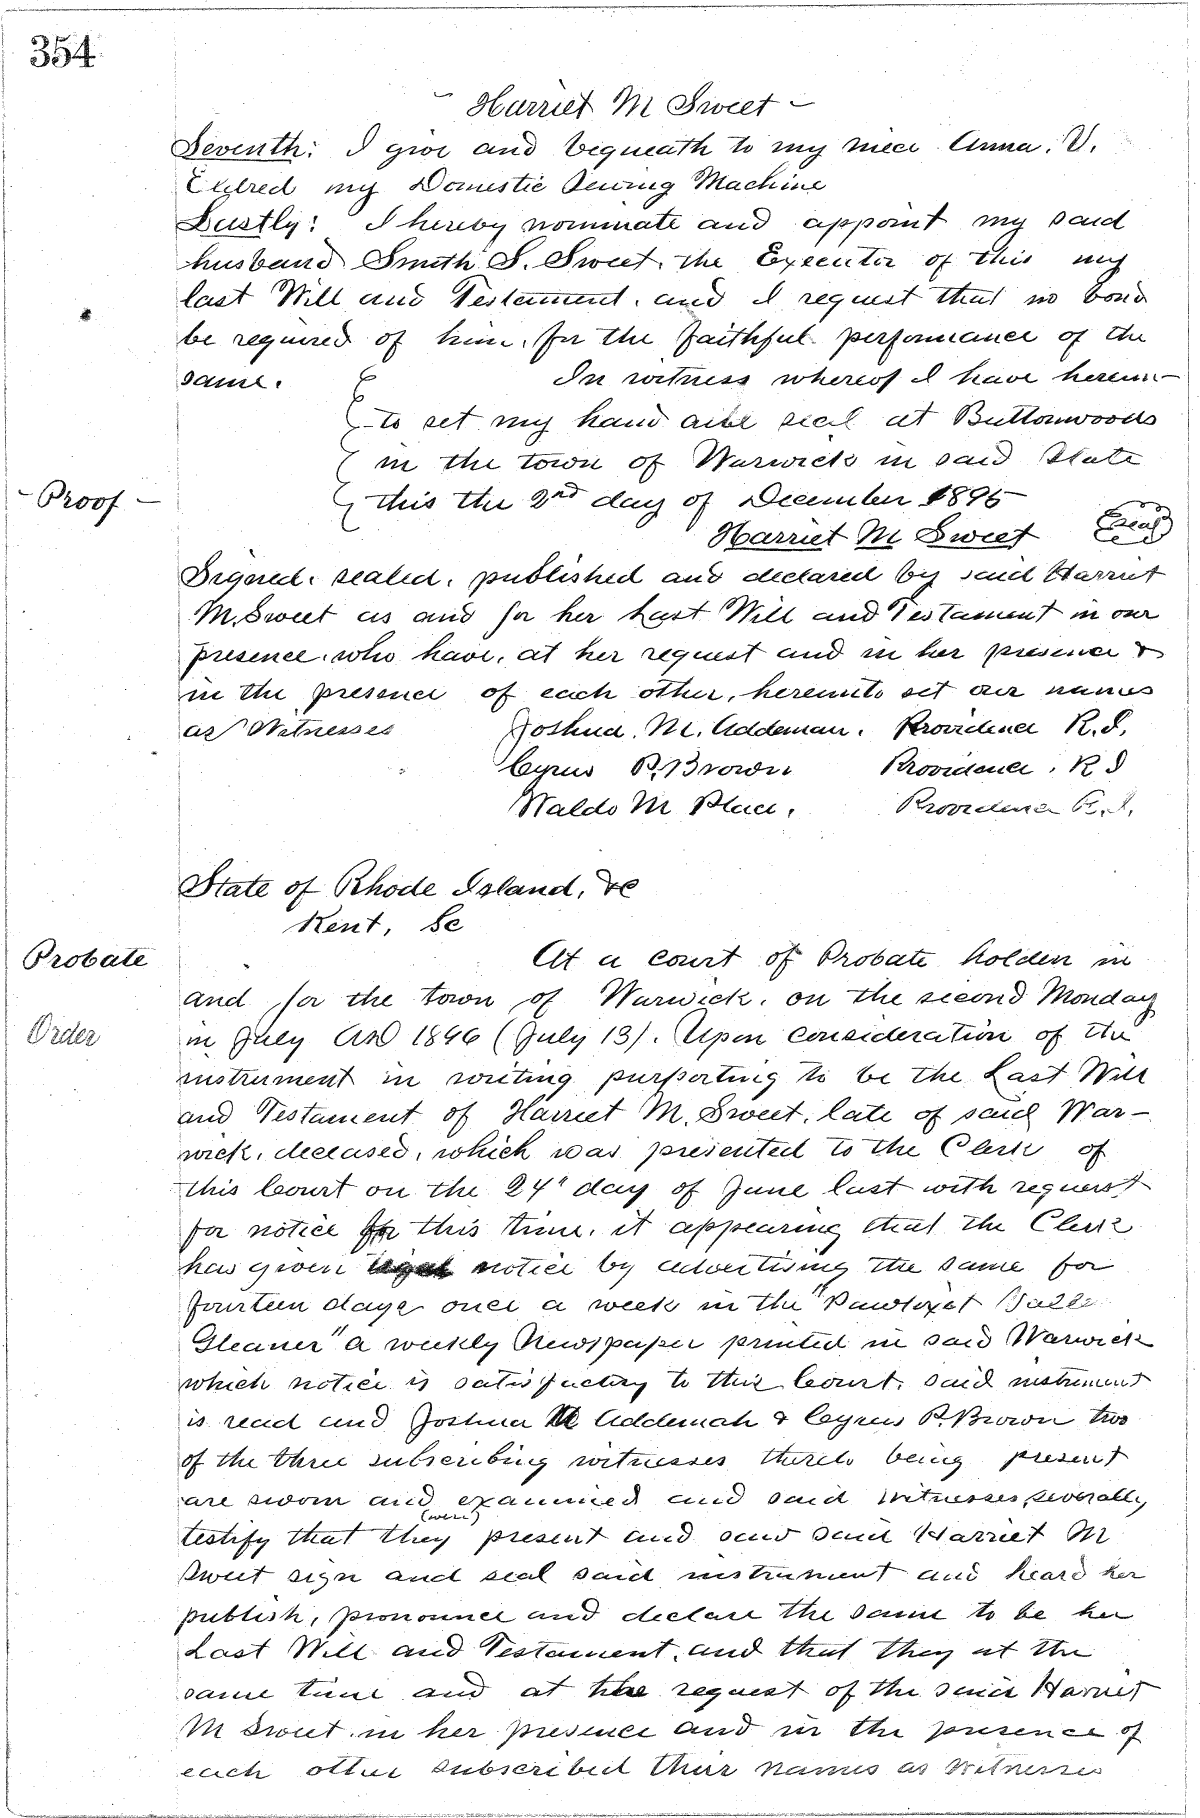 354
Harriet M Sweet
Seventh: I give and bequeath to my niece Anna. V.
Eldred my Domestic Sewing Machine
Lastly: I hereby nominate and appoint my said
husband Smith S. Sweet, the Executor of this my
last Will and Testament, and I request that no bond
be required of him, for the faithful performance of the
same. In witness whereof I have hereun-
to set my hand and seal at Buttonwoods
in the town of Warwick in said State
- Proof - this the 2nd day of December 1895
Harriet M Sweet (seal)
Signed, sealed, published and declared by said Harriet
M. Sweet as and for her Last Will and Testament in our
presence, who have, at her request and in her presence &
in the presence of each other, hereunto set our names
as Witnesses Joshua. M. Addeman. Providence R.I.
Cyrus P. Brown Providence. R I
Waldo M Place. Providence R.I.
State of Rhode Island, &c
Kent, Sc
Probate At a court of Probate holden in
and for the town of Warwick, on the second Monday
Order in July AD 1896 (July 13). Upon consideration of the
instrument in writing purporting to be the Last Will
and Testament of Harriet M. Sweet, late of said War-
wick, deceased, which was presented to the Clerk of
this Court on the 24" day of June last with request
for notice for this time, it appearing that the Clerk
has given notice by advertising the same for
fourteen days once a week in the "Pawtuxet Valley
Gleaner" a weekly Newspaper printed in said Warwick
which notice is satisfactory to this Court, said instrument
is read and Joshua M Addeman & Cyrus P. Brown two
of the three subscribing witnesses thereto being present
are sworn and examined and said witnesses, severally
testify that they (were) present and saw said Harriet M
Sweet sign and seal said instrument and heard her
publish, pronounce and declare the same to be her
Last Will and Testament, and that they at the
same time and at the request of the said Harriet
M Sweet in her presence and in the presence of
each other subscribed their names as Witnesses